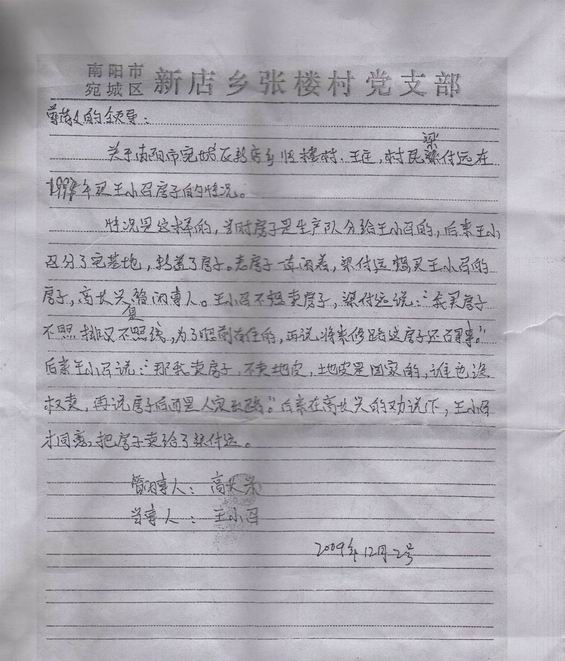 南阳市
宛城区 新店乡张楼村党支部
尊敬的领导：
关于南阳市宛城区新店乡张楼村、王庄，村民梁付远在
1997年买王小召房子的情况。
情况是这样的，当时房子是生产队分给王小召的，后来王小
召分了宅基地，新盖了房子。老房子一直闲着，梁付远想买王小召的
房子，高长兴管闲事人。王小召不想卖房子，梁付远说：“我买房子
不照排又不照线，为了眼前居住的，再说将来修路这房子还百事。”
后来王小召说：“那我卖房子，不卖地皮，土地皮是国家的，谁也没
权卖，再说房后面是人家出路。”后来在高长兴的劝说下，王小召
才同意，把房子卖给了梁付远。
管闲事人：高长兴
当事人：王小召
2009年12月2号